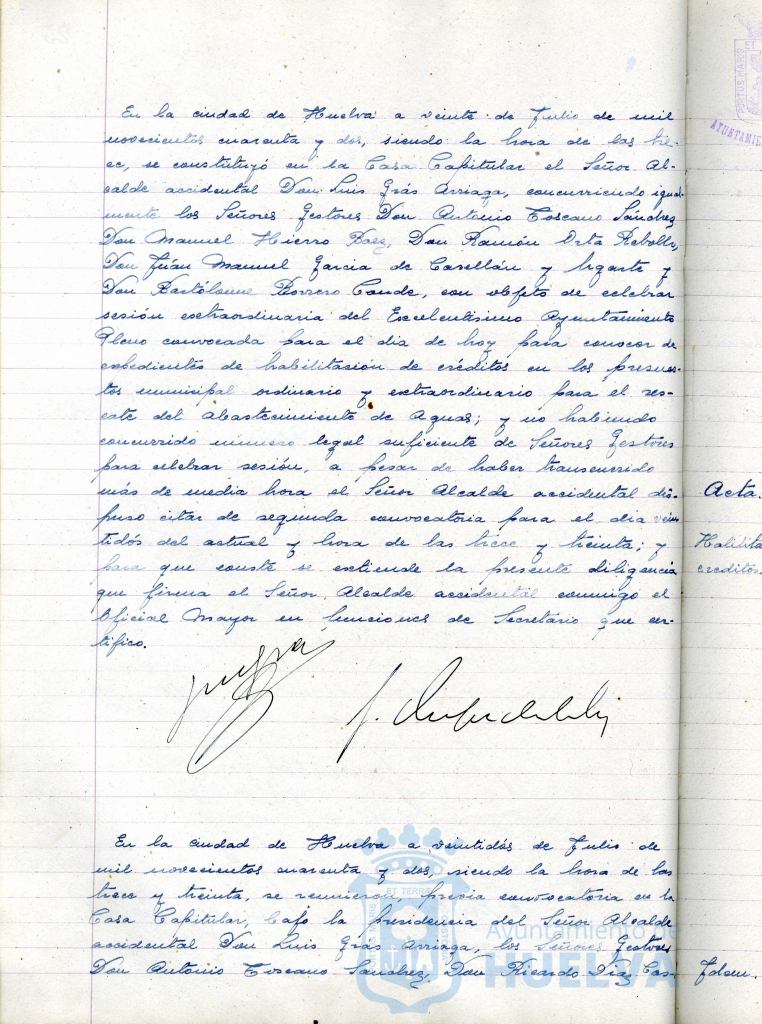 En la ciudad de Huelva a veinte de Julio de mil
novecientos cuarenta y dos, siendo la hora de las tre-
ce, se constituyó en la Casa Capitular el Señor Al-
calde accidental Don Luis Grás Arriaga, concurriendo igual-
mente los Señores Gestores Don Antonio Toscano Sánchez,
Don Manuel Hierro Baez, Don Ramón Orta Rebollo,
Don Juán Manuel Garcia de Casellán y Ugarte y
Don Bartólome Borrero Conde, con objeto de celebrar
sesión extraordinaria del Excelentísimo Ayuntamiento
Pleno convocada para el dia de hoy para conocer de
expedientes de habilitación de créditos en los presupues-
tos municipal ordinario y extraordinario para el res-
cate del Abastecimiento de Aguas; y no habiendo
concurrido número legal suficiente de Señores Gestores
para celebrar sesión, a pesar de haber transcurrido
más de media hora el Señor Alcalde accidental dis-
puso citar de segunda convocatoria para el dia vein-
tidós del actual y hora de las trece y treinta; y
para que conste se extiende la presente diligencia
que firma el Señor Alcalde accidental conmigo el
Oficial Mayor en funciones de Secretario que cer-
tifico.
En la ciudad de Huelva a veintidós de Julio de
mil novecientos cuarenta y dos, siendo la hora de las
trece y treinta, se reunieron, previa convocatoria en la
Casa Capitular, bajo la presidencia del Señor Alcalde
accidental Don Luis Grás Arriaga, los Señores Gestores
Don Antonio Toscano Sánchez, Don Ricardo Díaz Cas-
Ayuntamiento de
HUELVA
Acta.
Habilita
creditos.
Idem.